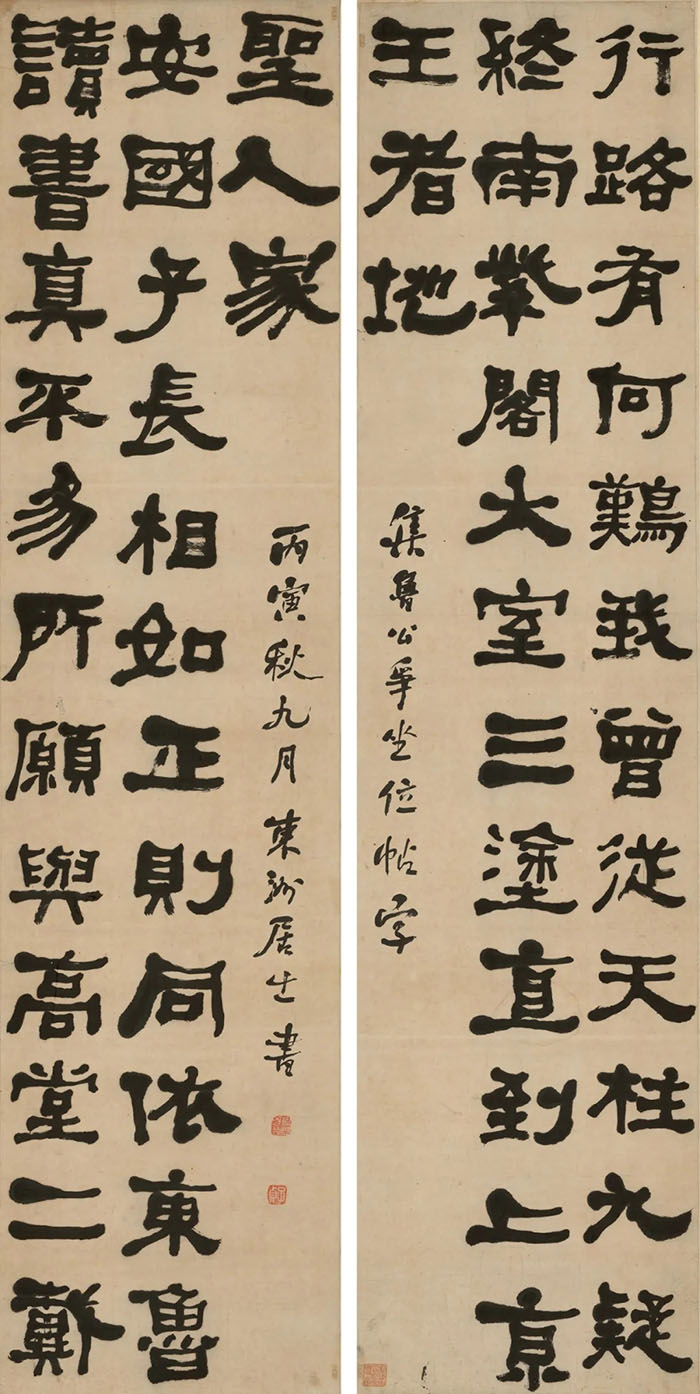 行路有何難我曾從天柱九疑
終南紫閣大室三塗直到上京
王者地
集魯公爭坐位帖字
讀書真平易所願與高堂二戴
安國子長相如正則同依東魯
聖人家
丙寅秋九月東洲居士書